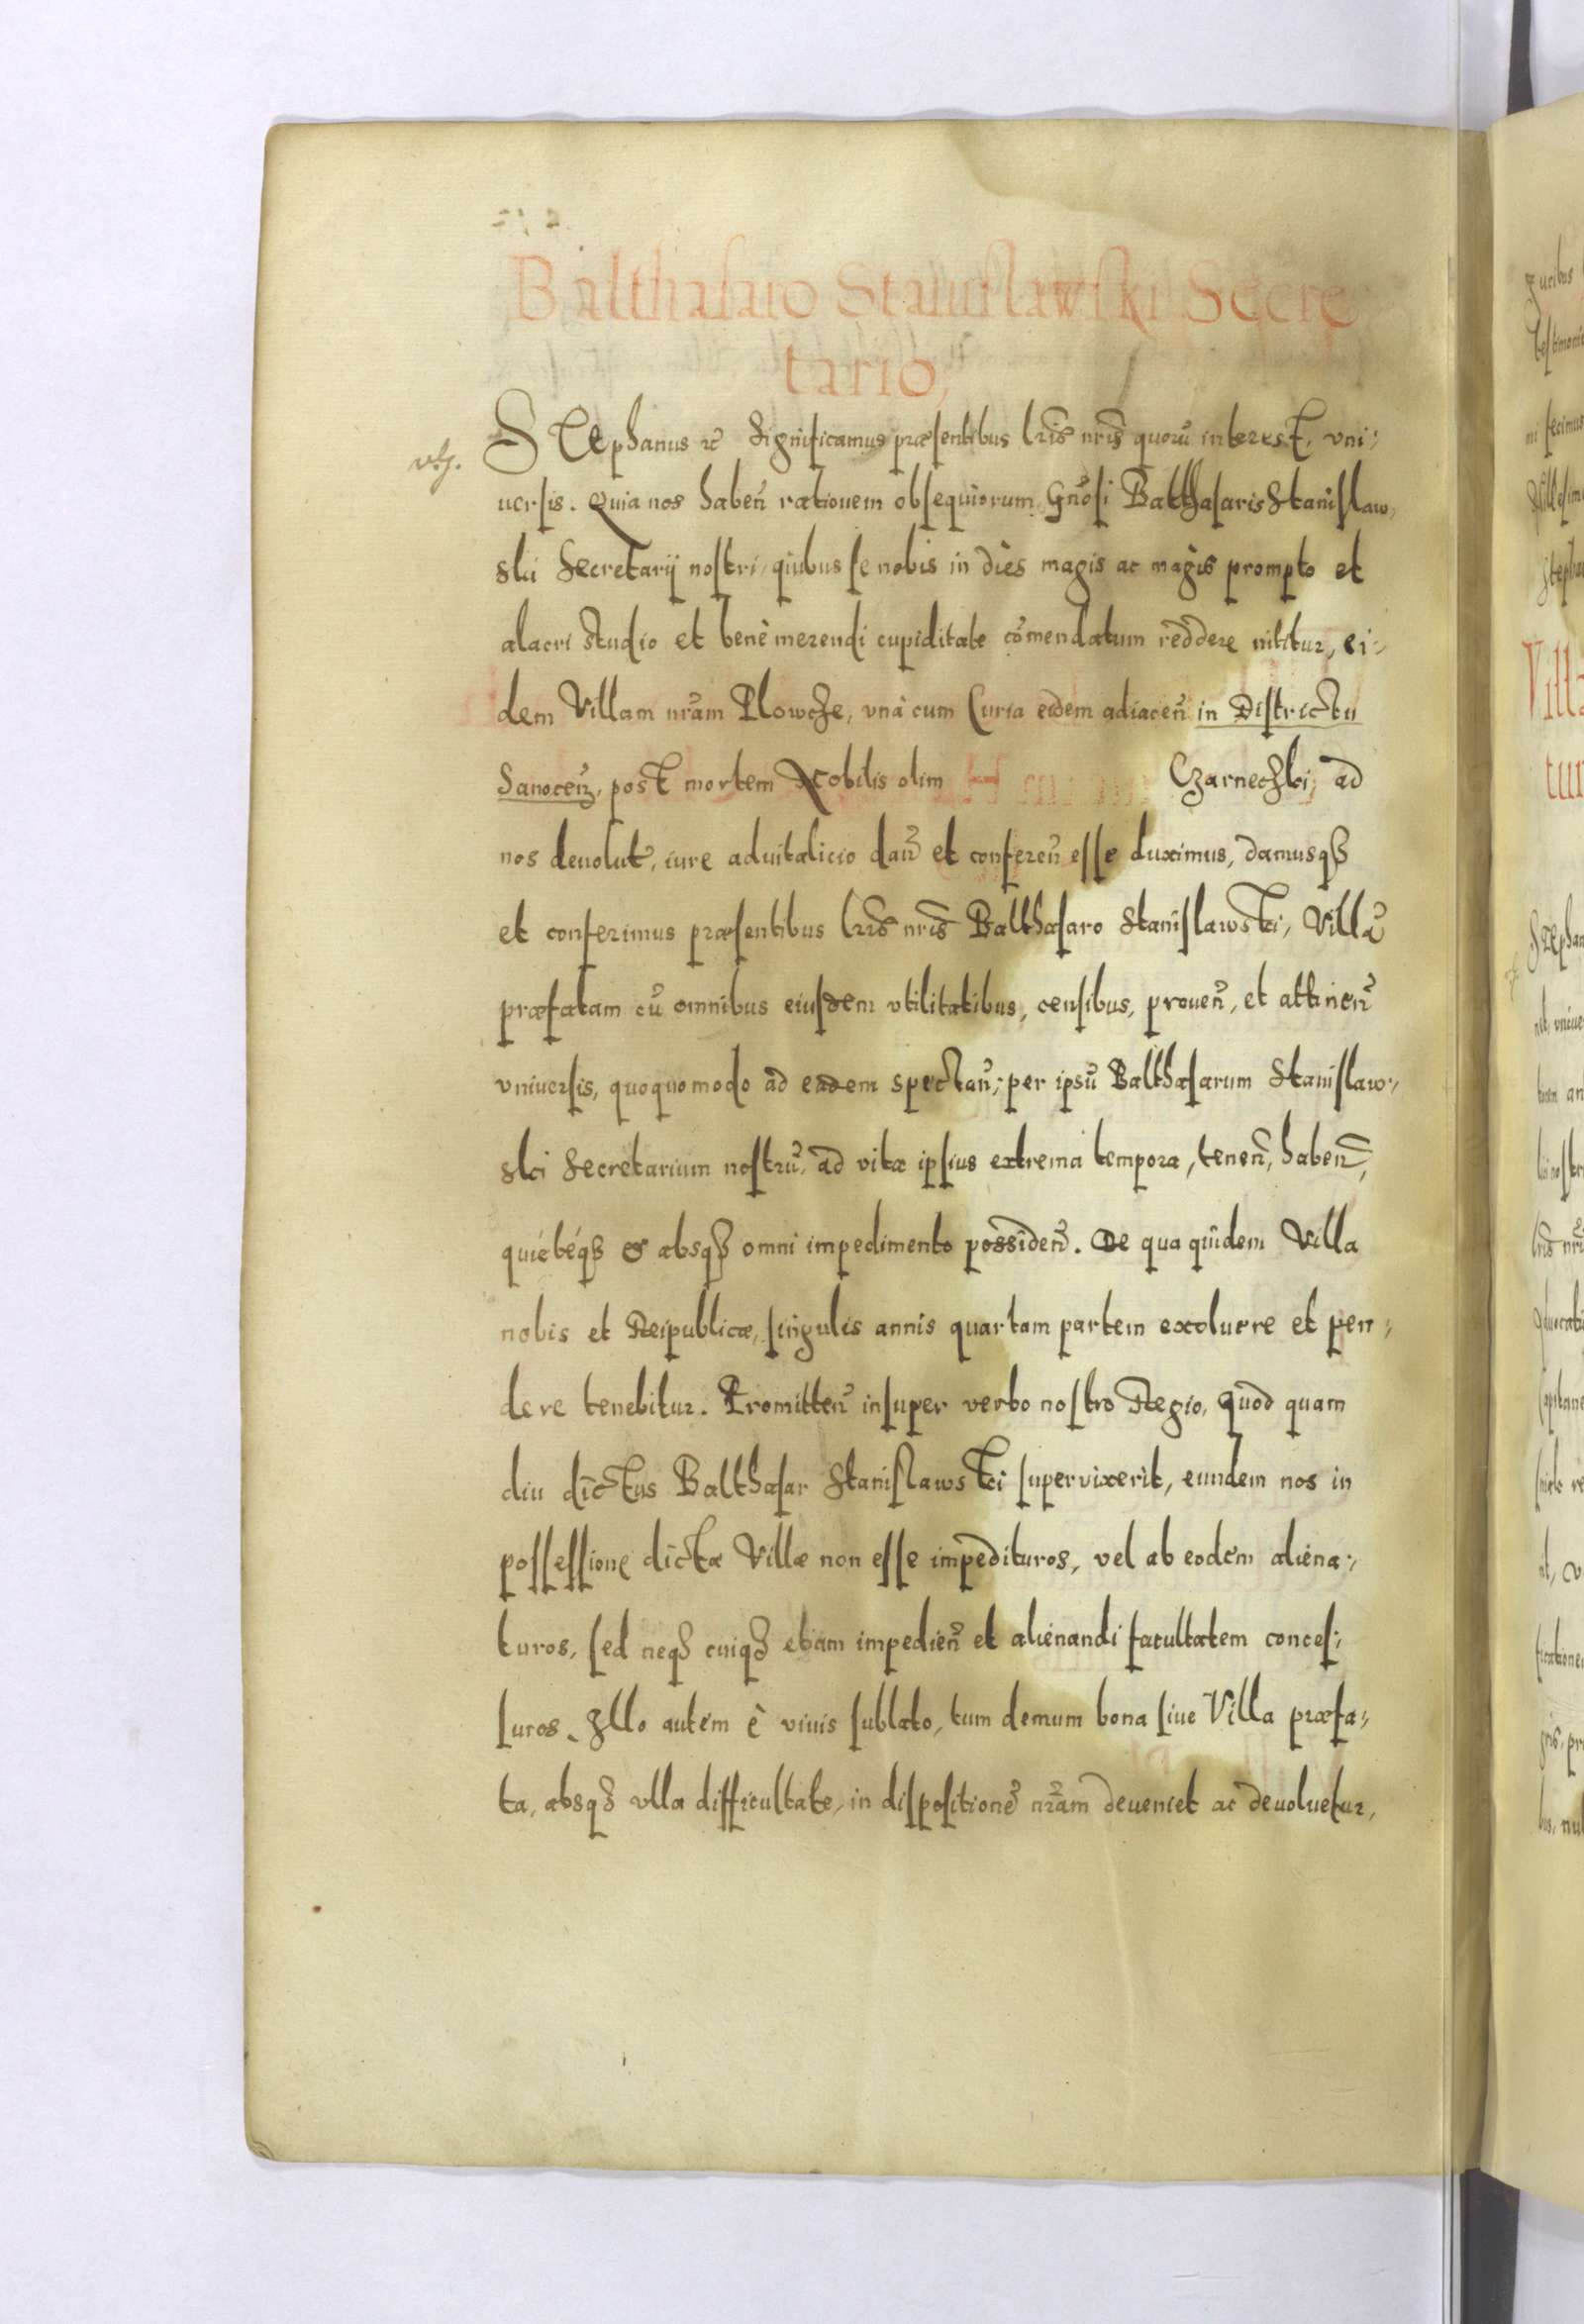 Balthasaro Stanislawski Secre
tario,
STephanus etc Significamus præsentibus lris nris quorũ interest, vni:
uersis. Quia nos habeñ rationem obsequiorum Gnosi Balthasaris Stanislaw,
ski Secretarij nostri, quibus se nobis in dies magis ac magis prompto et
alacri studio et benè merendi cupiditate cõmendatum reddere nititur, ei:
dem Villam nram Plowcze, vnà cum Curia eidem adiaceñ in Districtu
Sanoceñ, post mortem Nobilis olim Czarneczki, ad
nos deuolut, iure aduitalicio dañ et confereñ esse duximus, damusqꝫ
et conferimus præsentibus lris nris Balthasaro Stanislawski, Villã
præfatam cũ omnibus eiusdem vtilitatibus, censibus, proueñ, et attineñ
vniuersis, quoquomodo ad eadem spectañ, per ipsũ Balthasarum Stanislaw:
ski Secretarium nostrũ, ad vitæ ipsius extrema tempora, teneñ, habeñ,
quietéqꝫ & absqꝫ omni impedimento possideñ. De qua quidem Villa
nobis et Reipublicæ, singulis annis quartam partem exoluere et pen:
dere tenebitur. Promitteñ insuper verbo nostro Regio, quod quam
diu dictus Balthasar Stanislawski supervixerit, eundem nos in
possessione dictæ Villæ non esse impedituros, vel ab eodem aliena:
turos, sed neqꝫ cuiqꝫ etiam impedieñ et alienandi facultatem conces:
suros. Illo autem è viuis sublato, tum demum bona siue Villa præfa:
ta, absqꝫ vlla difficultate, in dispositionẽ nram deueniet ac deuoluetur,